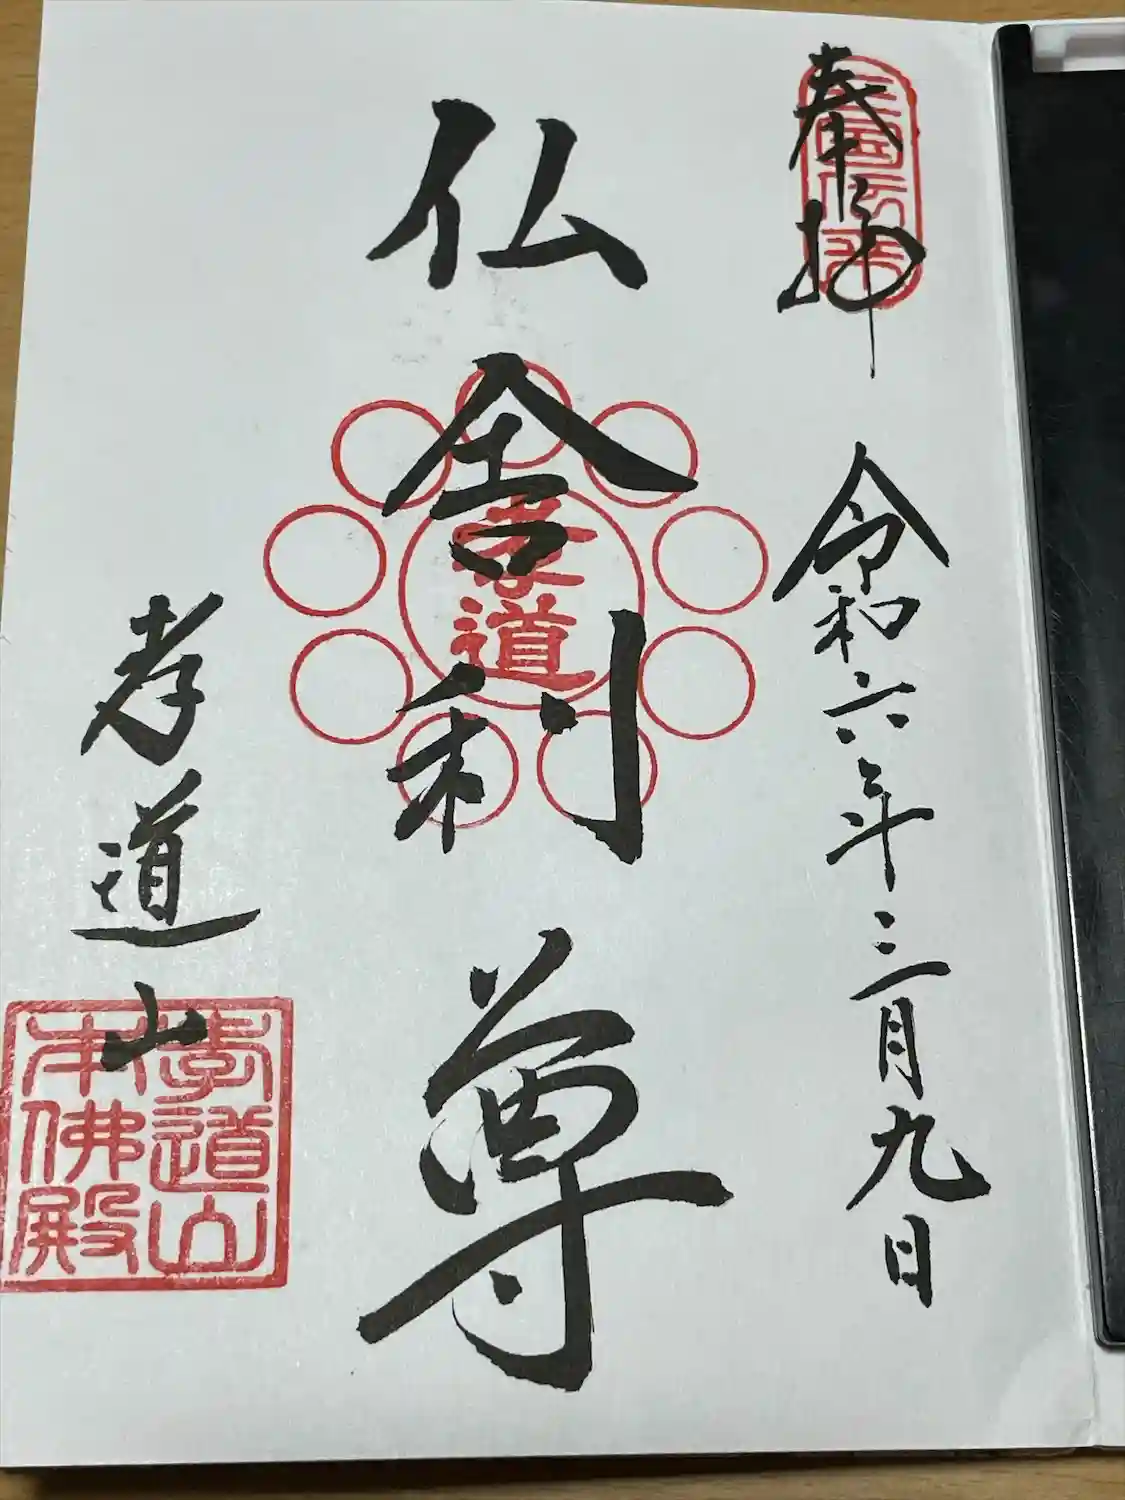 奉拝
三国伝来
令和六年三月九日
仏舎利尊
孝道
孝道山
孝道山
本佛殿